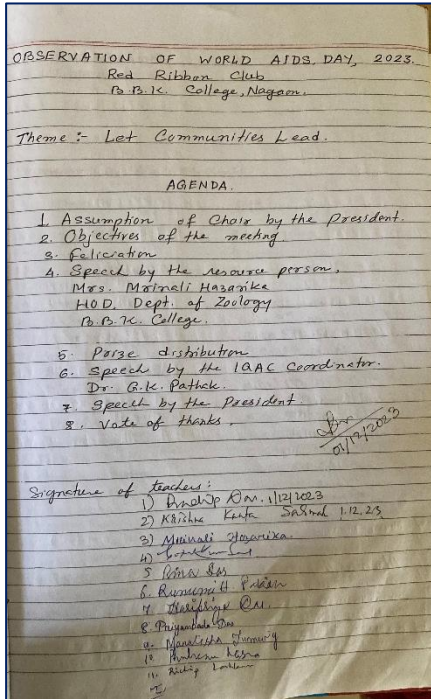 OBSERVATION OF WORLD AIDS DAY, 2023.
Red Ribbon Club
B.B.K. College, Nagaon.
Theme :- Let Communities Lead.
AGENDA.
1. Assumption of Chair by the President.
2. Objectives of the meeting.
3. Feliciation
4. Speech by the resource person,
Mrs. Mrinali Hazarika
HOD. Dept. of Zoology
B.B.K. College.
5. Prize distribution
6. Speech by the IQAC Coordinator.
Dr. G.K. Pathak.
7. Speech by the President
8. Vote of thanks.
01/12/2023
Signature of teachers:
1) Das. 1/12/2023
2) Krishna Kanta 1.12.23
3) Mrinali Hazarika.
4)
5 Das
6.
7. Das.
8. Priyambada Das
9.
10.
11.